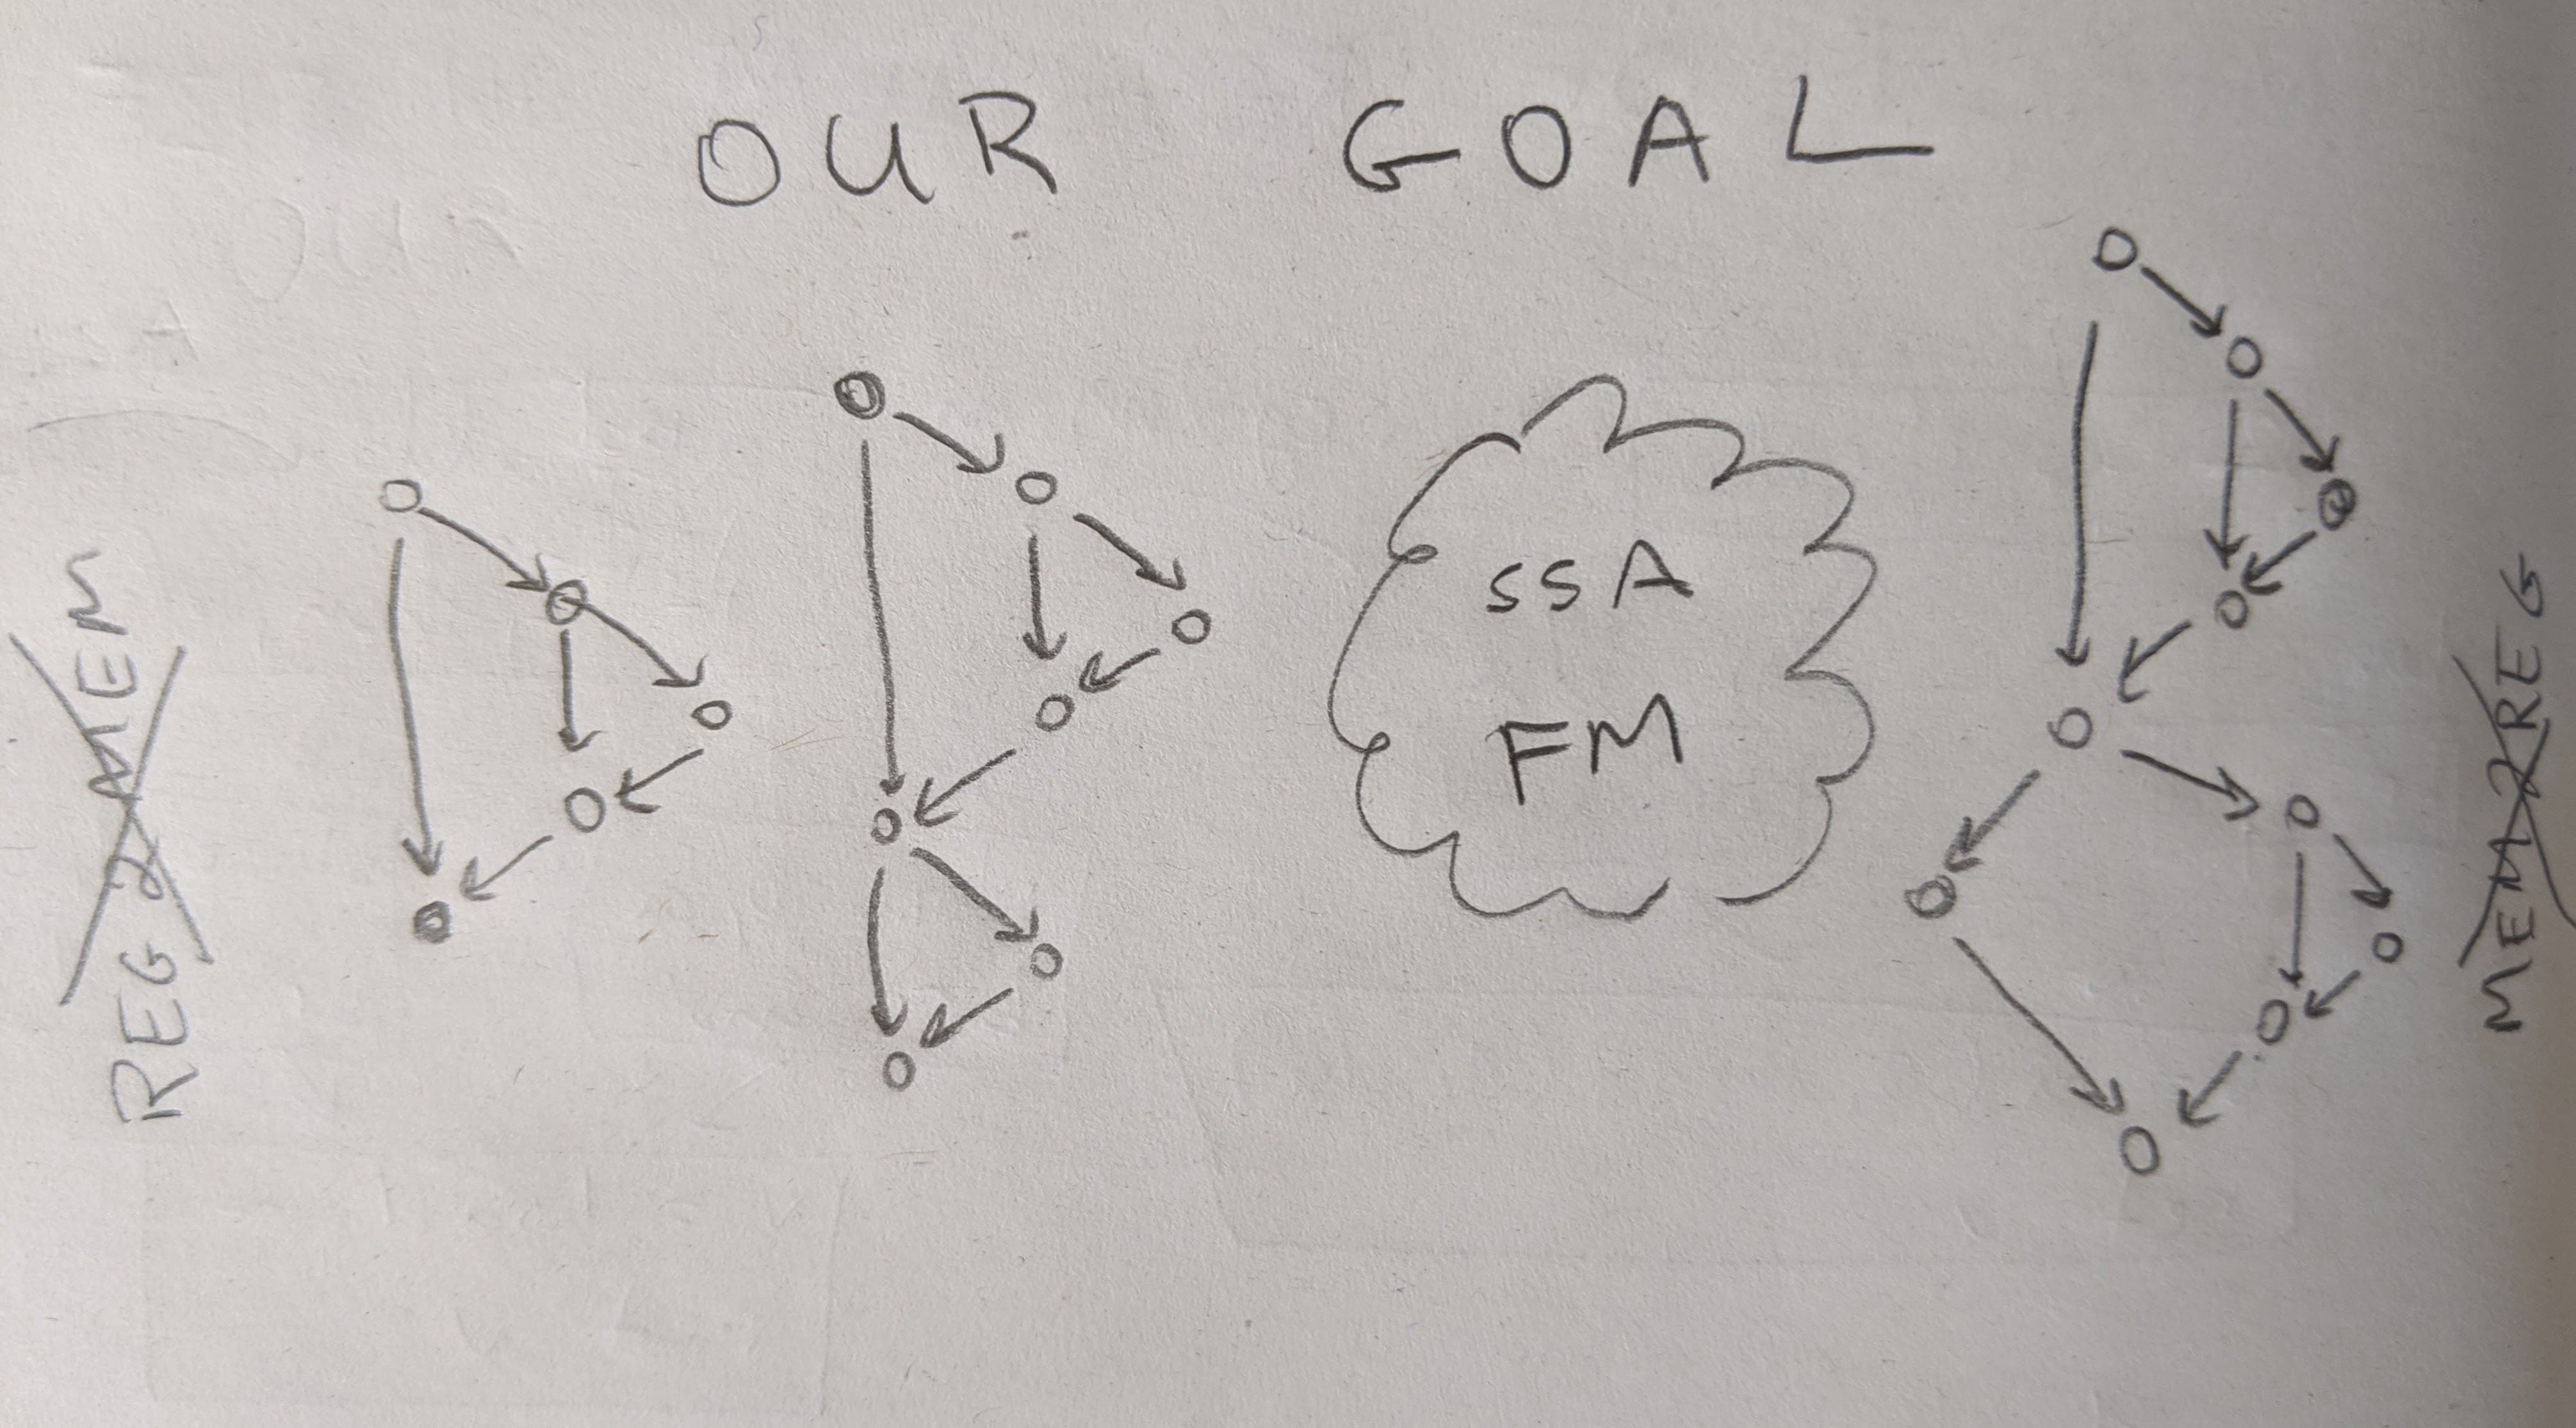 OUR GOAL
REG2MEM
SSA
FM
MEM2REG